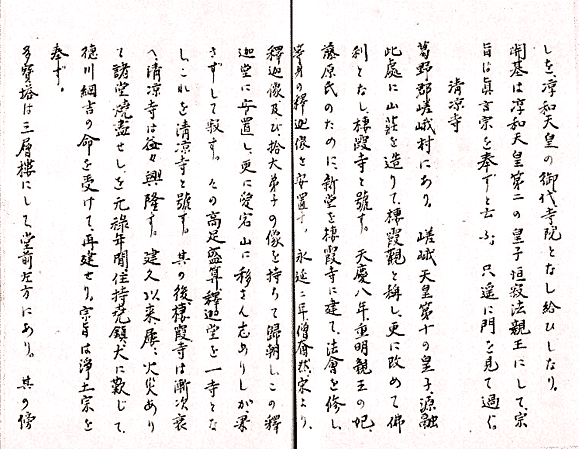 しを、淳和天皇の御代寺院となし給ひしなり。
開基は淳和天皇第二の皇子恒寂法親王にして、宗
旨は眞言宗を奉ずと云ふ。只遥に門を見て過ぐ。
清凉寺
葛野郡嵯峨村にあり。嵯峨天皇第十の皇子、源融
此處に山莊を造りて、棲霞觀と稱し、更に改めて佛
刹となし、棲霞寺と號す。天慶八年、重明親王の妃、
藤原氏のために、新堂を棲霞寺に建て、法會を修し、
等身の釋迦像を安置す。永延二年僧奝然、宋より、
釋迦像及び拾大弟子の像を持ちて歸朝し、この釋
迦堂に安置し、更に愛宕山に移さん志ありしが果
さずして寂す。その高足盛算釋迦堂を一寺とな
し、これを清凉寺と號す。其の後棲霞寺は漸次衰
へ、清凉寺は益々興隆す。建久以来屢々火災あり
て諸堂焼盡せしを、元祿年間住持堯鎮犬に歎じて、
徳川綱吉の命を受けて、再建せり。宗旨は浄土宗を
奉ず。
多寳塔は三層樓にして堂前左方にあり。其の傍